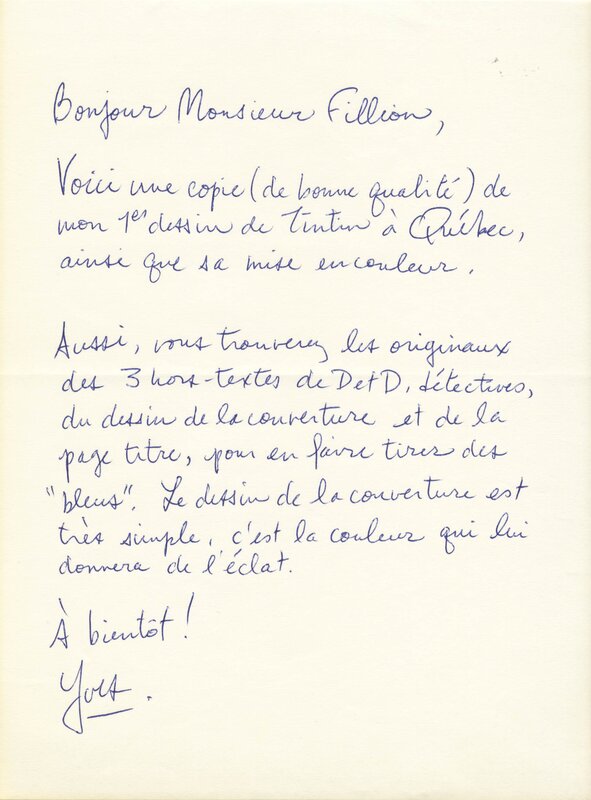 Bonjour Monsieur Fillion,
Voici une copie (de bonne qualité) de
mon 1er dessin de Tintin à Québec,
ainsi que sa mise en couleur.
Aussi, vous trouverez les originaux
des 3 hors-textes de D et D, détectives,
du dessin de la couverture et de la
page titre, pour en faire tirer des
"bleus". Le dessin de la couverture est
très simple, c'est la couleur qui lui
donnera de l'éclat.
À bientôt !
Yves.